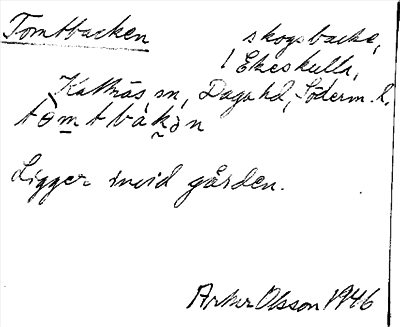 Tomtbacken skogsbacke,
Ekeskulla,
Kattnäs sn, Daga hd, Söderm. l.
tòm̲tbàkən
Ligger invid gården.
Arthur Olsson 1946